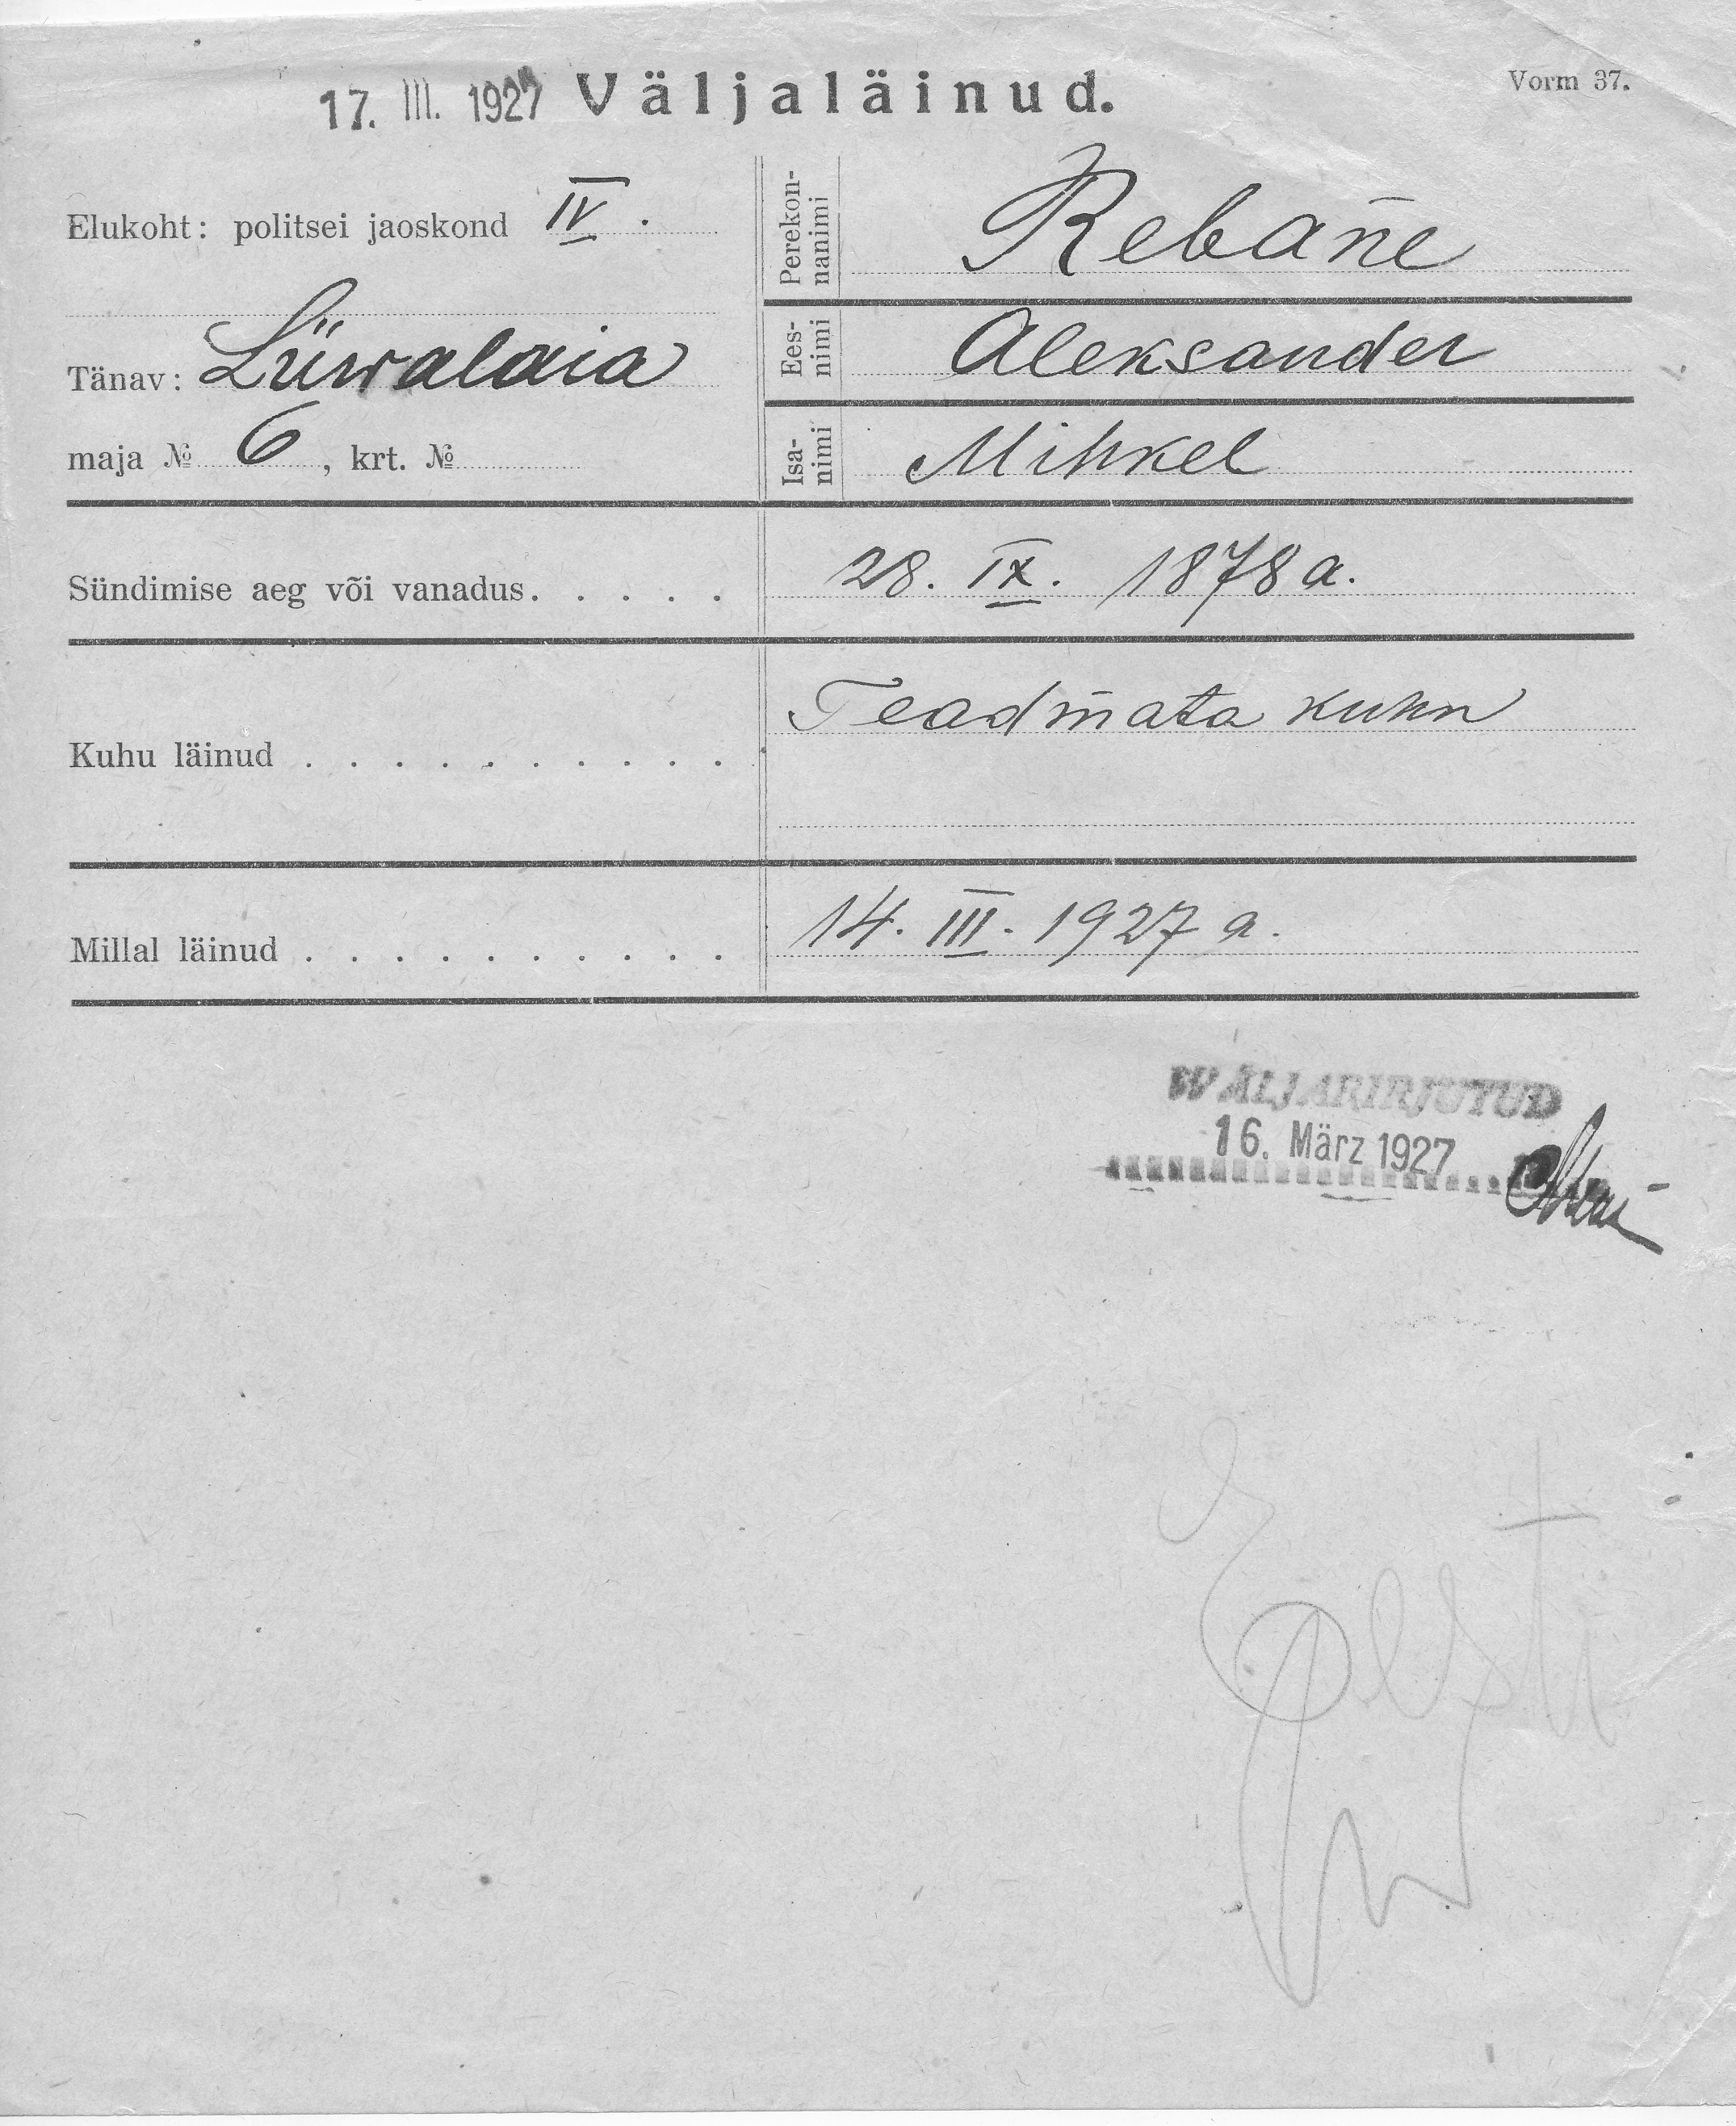 17. III. 1927 Väljaläinud.
Vorm 37.
Elukoht: politsei jaoskond IV.
Tänav: Liiwalaia
maja № 6, krt. №
Perekon-
nanimi
Rebane
Ees-
nimi
Aleksander
Isa-
nimi
Mihkel
Sündimise aeg või vanadus. . . . . 28. IX. 1878 a.
Kuhu läinud . . . . . . . . . . Teadmata kuhu
Millal läinud . . . . . . . . . . 14. III. 1927 a.
WÄLJAKIRJUTUD
16. März 1927
Eesti